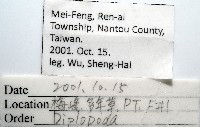 Mei-Feng, Ren-ai
Township, Nantou County,
Taiwan.
2001. Oct. 15.
leg. Wu, Sheng-Hai
Date 2001.10.15
Location 梅峰 P.T.
Order Diplopoda